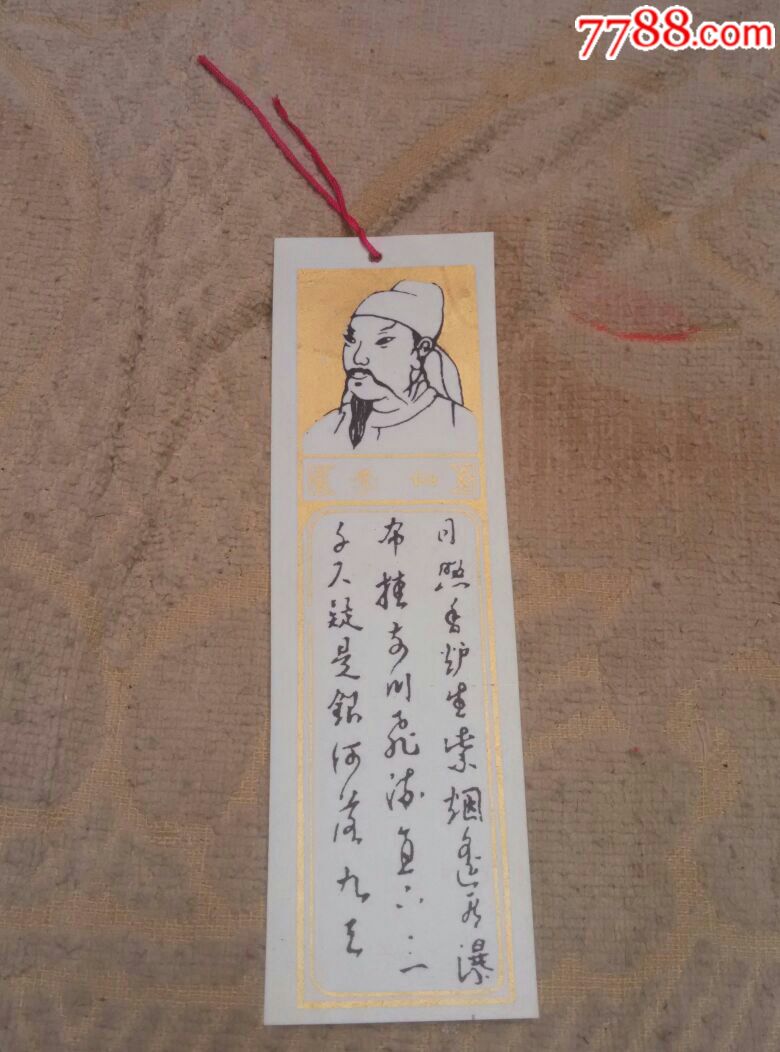 7788.com
日照香炉生紫烟遥看瀑
布挂前川飛流直下三
千尺疑是銀河落九天